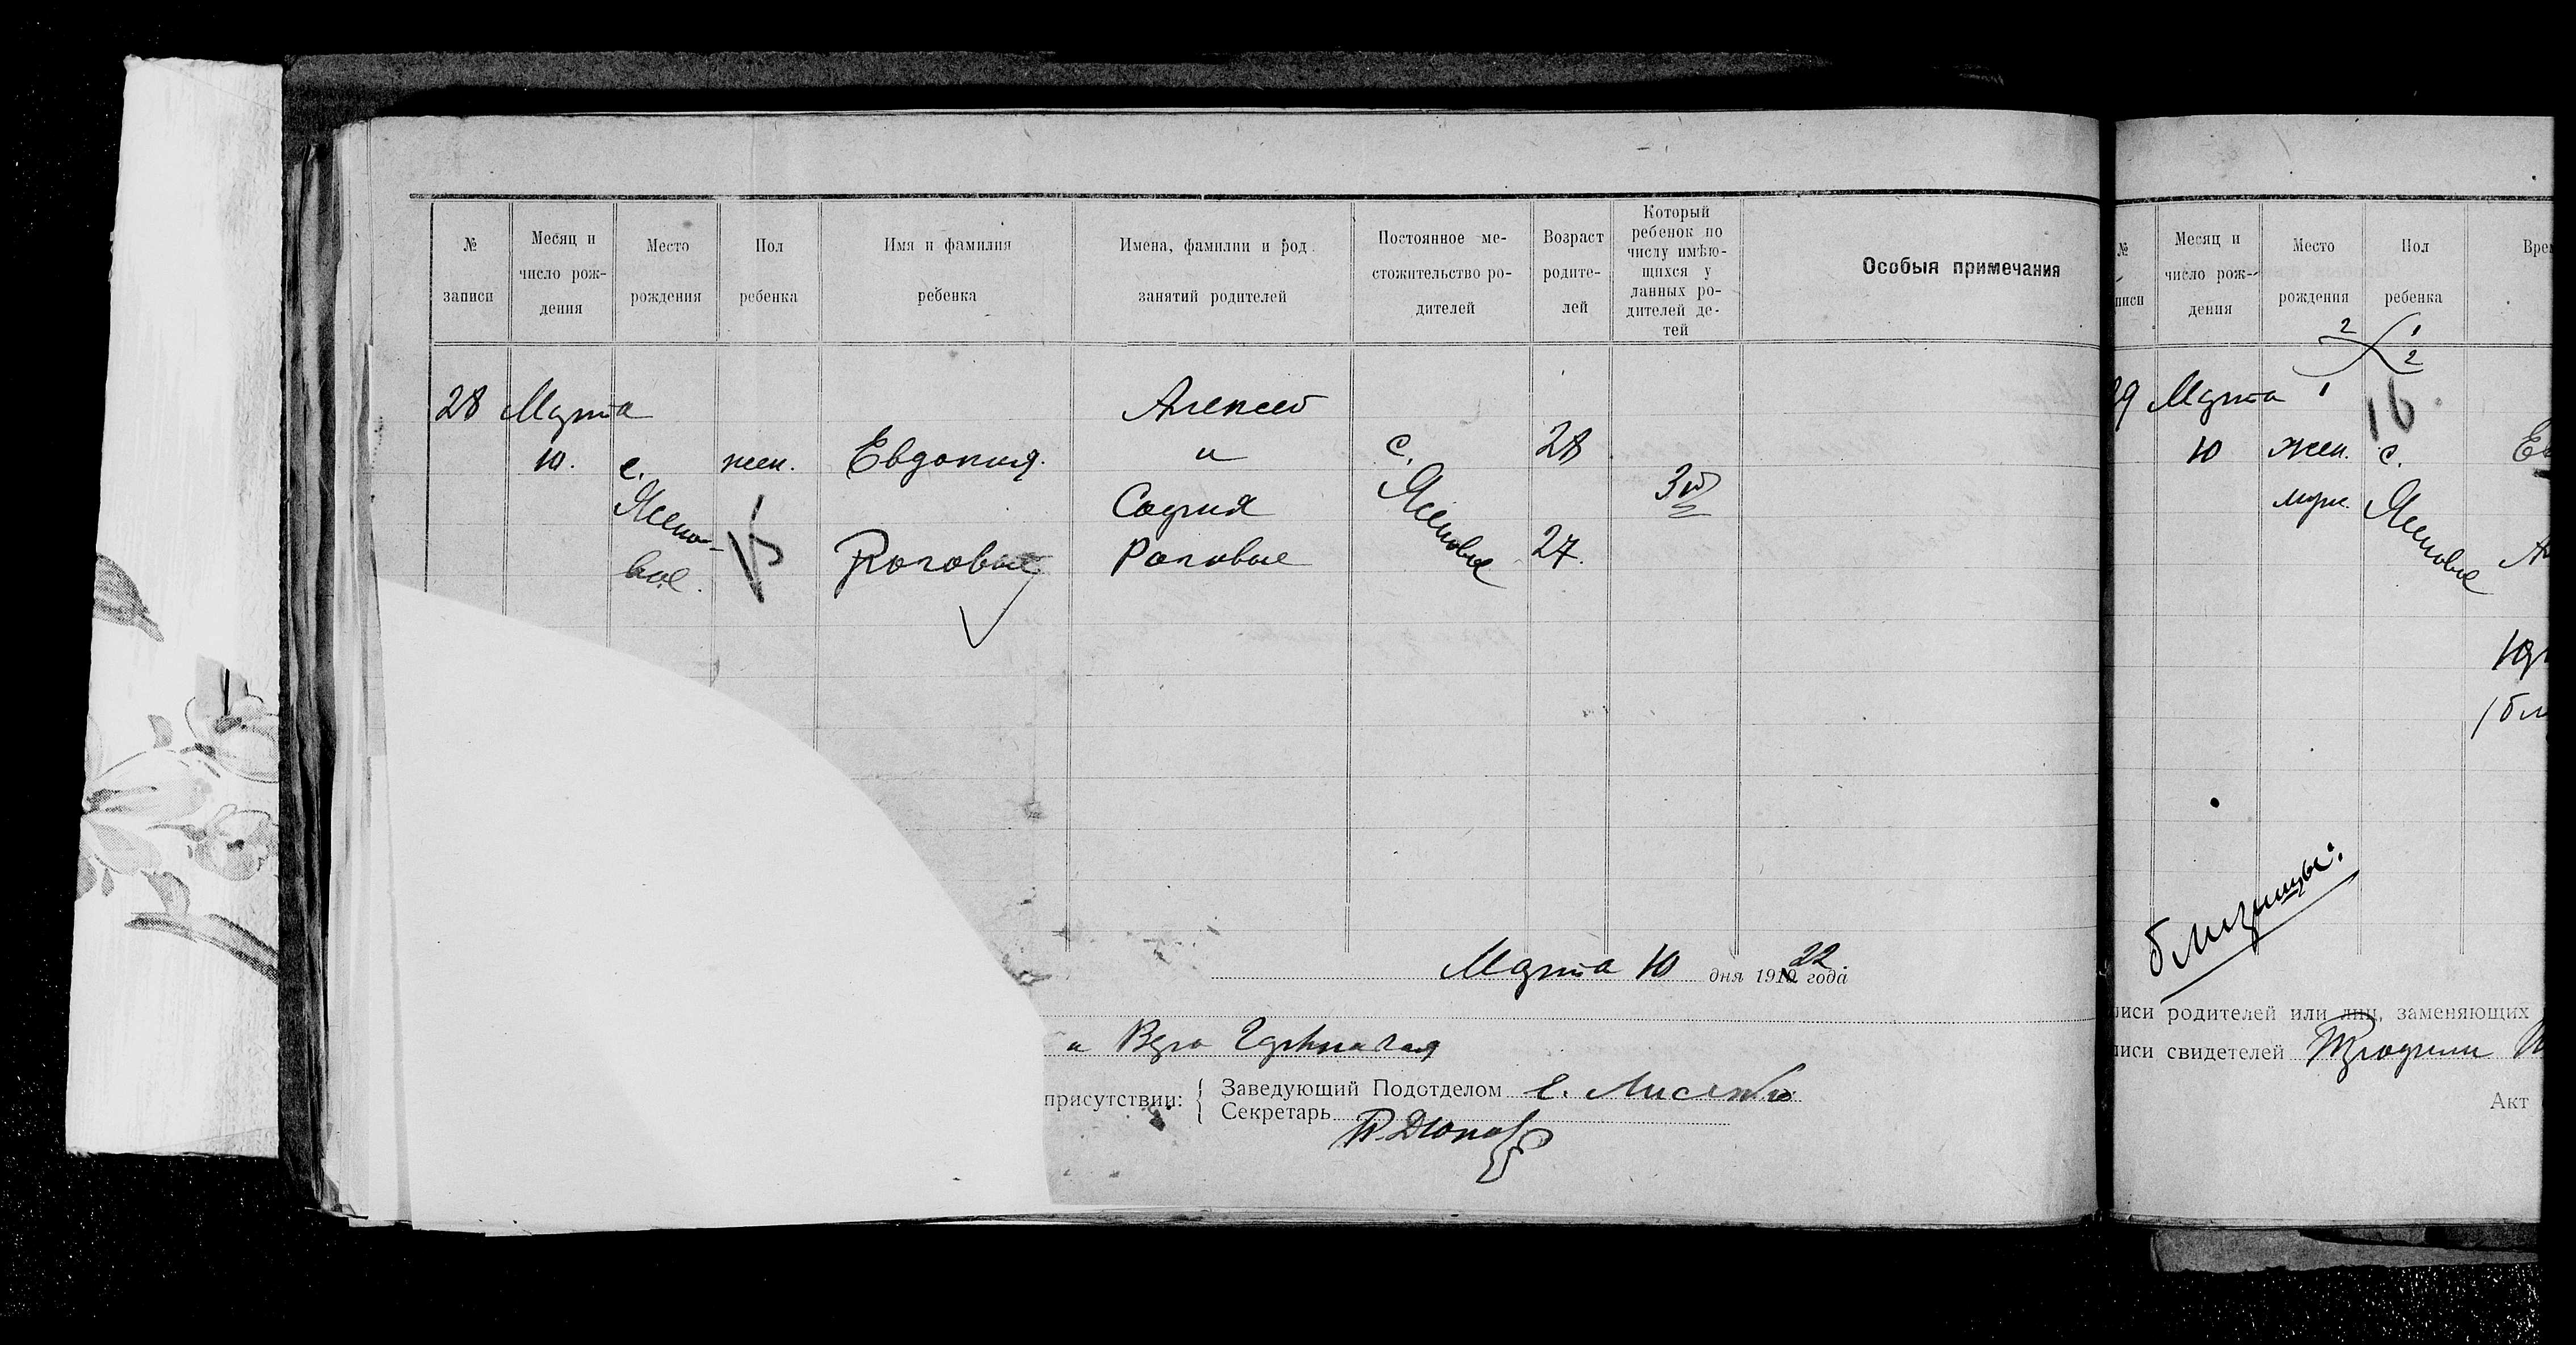 № записи
Месяц и число рождения
Место рождения
Пол ребенка
Имя и фамилия ребенка
Имена, фамилии и род занятий родителей
Постоянное местожительство родителей
Возраст родителей
Который ребенок по числу имѣющихся у данных родителей детей
Особыя примечания
28 Марта Алексей
10. с. жен. Евдокия. и с. 28
Ясено- София Ясеновое 3й
вое. 15 Роговые Роговые 27.
Марта 10 дня 1922 года
и Вера
присутствии: Заведующий Подотделом
Секретарь
№ писи
Месяц и число рождения
Место рождения
Пол ребенка
Врем
2 1
2
29 Марта 1 16
10 жен. с. Ев
муж. Ясеновое
(бл
близнецы.
писи родителей или лиц, заменяющих
писи свидетелей
Акт